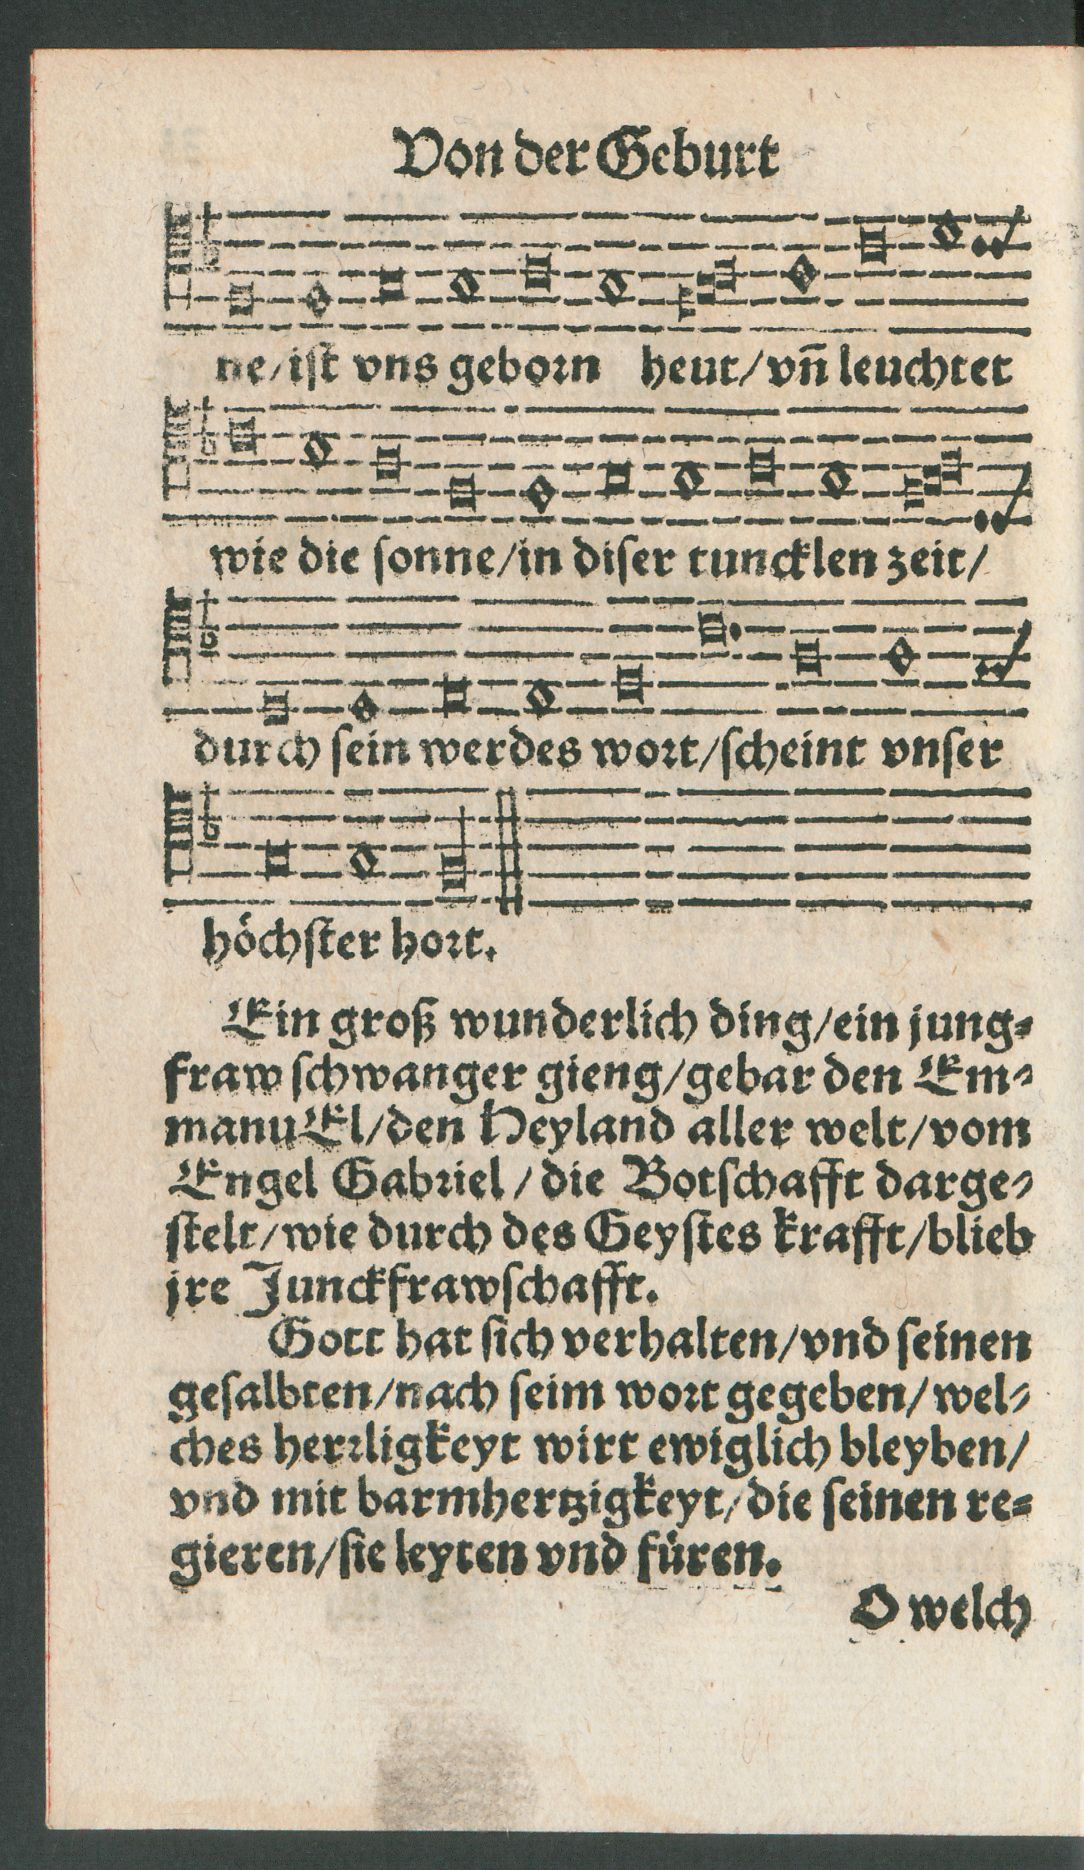 Von der Geburt
ne/ist vns geborn heut/vñ leuchtet
wie die sonne/in diser tuncklen zeit/
durch sein werdes wort/scheint vnser
höchster hort.
Ein groß wunderlich ding/ein jung-
fraw schwanger gieng/gebar den Em-
manuEl/den Heyland aller welt/vom
Engel Gabriel/die Botschafft darge-
stelt/wie durch des Geystes krafft/blieb
jre Junckfrawschafft.
Gott hat sich verhalten/vnd seinen
gesalbten/nach seim wort gegeben/wel-
ches herrligkeyt wirt ewiglich bleyben/
vnd mit barmhertzigkeyt/die seinen re-
gieren/sie leyten vnd füren.
O welch